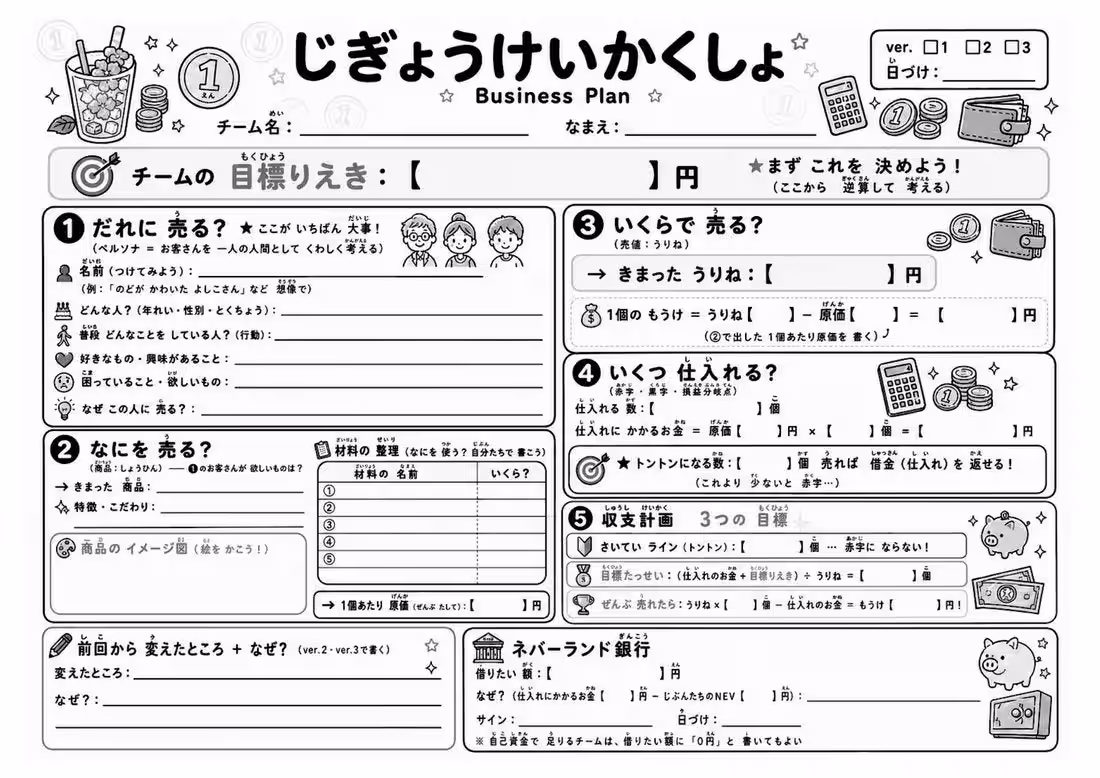 じぎょうけいかくしょ
Business Plan
ver. □1 □2 □3
日づけ：
チーム名：
なまえ：
チームの 目標りえき：【 】円
★まず これを 決めよう！
（ここから 逆算して 考える）
1 だれに 売る？ ★ ここが いちばん 大事！
（ペルソナ = お客さんを 一人の人間として くわしく 考える）
名前（つけてみよう）：
（例：「のどが かわいた よしこさん」など 想像で）
どんな人？（年れい・性別・とくちょう）：
普段 どんなことを している人？（行動）：
好きなもの・興味があること：
困っていること・欲しいもの：
なぜ この人に 売る？：
2 なにを 売る？
（商品：しょうひん）── ❶のお客さんが 欲しいものは？
→ きまった 商品：
特徴・こだわり：
商品の イメージ図（絵を かこう！）
材料の 整理（なにを 使う？ 自分たちで 書こう）
材料の 名前 いくら？
①
②
③
④
⑤
→ 1個あたり 原価（ぜんぶ たして）：【 】円
3 いくらで 売る？
（売値：うりね）
→ きまった うりね：【 】円
1個の もうけ = うりね【 】− 原価【 】 = 【 】円
（②で出した 1個あたり原価を 書く）
4 いくつ 仕入れる？
（赤字・黒字・損益分岐点）
仕入れる 数：【 】個
仕入れに かかるお金 = 原価【 】円 ×【 】個 =【 】円
★ トントンになる数：【 】個 売れば 借金（仕入れ）を 返せる！
（これより 少ないと 赤字…）
5 収支計画 3つの 目標
さいてい ライン（トントン）：【 】個 … 赤字に ならない！
目標たっせい：（仕入れのお金＋目標りえき）÷ うりね =【 】個
ぜんぶ 売れたら：うりね×【 】個 − 仕入れのお金 = もうけ【 】円！
前回から 変えたところ + なぜ？（ver.2・ver.3で書く）
変えたところ：
なぜ？：
ネバーランド銀行
借りたい 額：【 】円
なぜ？（仕入れにかかるお金【 】円 − じぶんたちのNEV【 】円）：
サイン：
日づけ：
※ 自己資金で 足りるチームは、借りたい額に「０円」と 書いてもよい